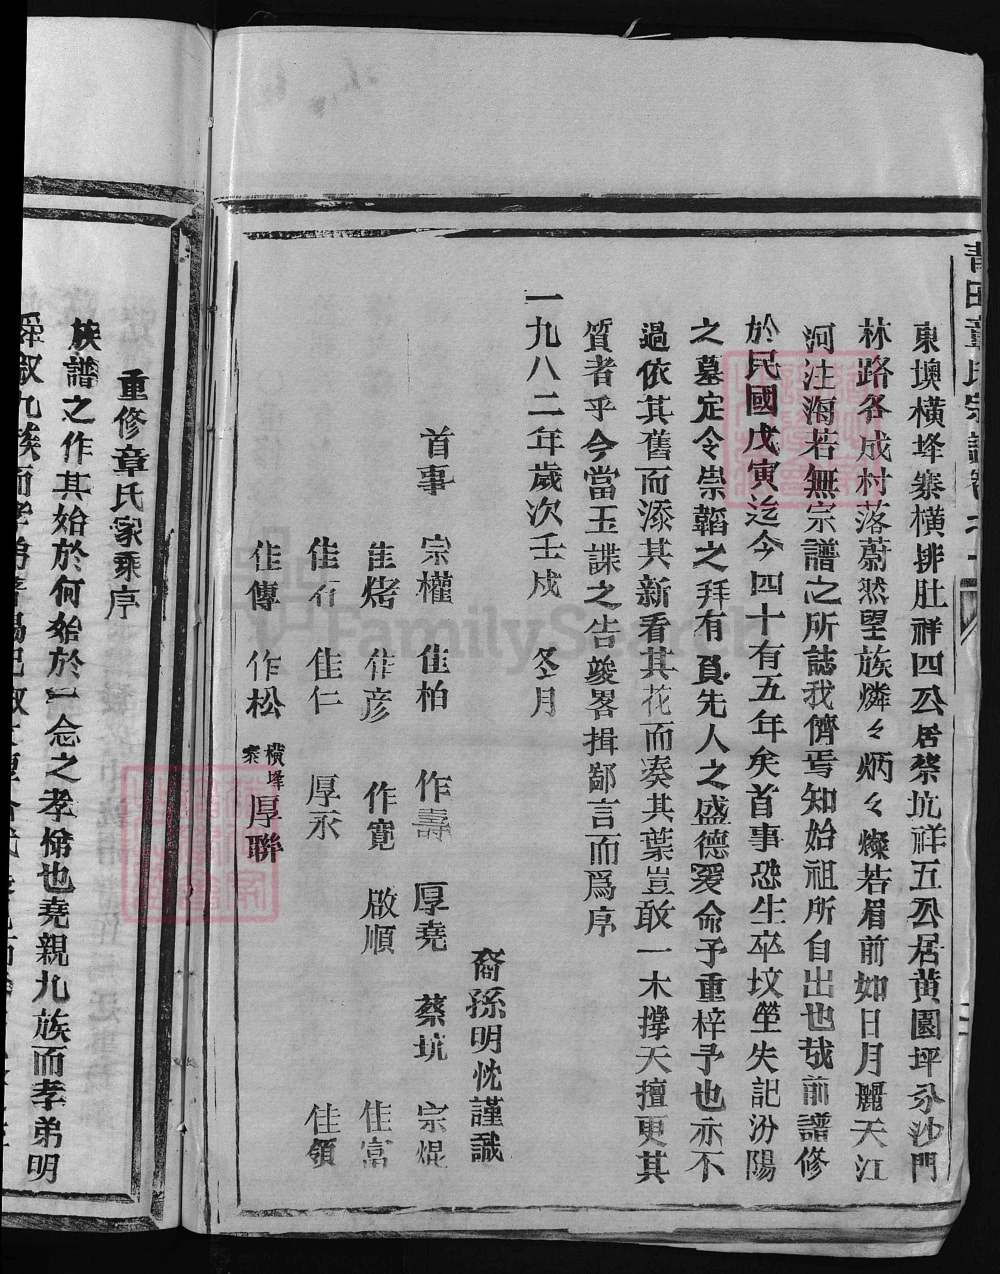 青田章氏宗譜
東墺橫埄寮橫排肚祥四公居蔡坑祥五公居黄園坪分沙門
林路各成村落蔚然望族燐々炳々燦若眉前如日月麗天江
河注海若無宗譜之所誌我儕焉知始祖所自出也哉前譜修
於民國戊寅迄今四十有五年矣首事恐生卒坟塋失記汾陽
之墓定令崇韜之拜有負先人之盛德爰命予重梓予也亦不
過依其舊而添其新看其花而凑其葉豈敢一木撐天擅更其
質者乎今當玉諜之告竣畧揖鄙言而爲序
一九八二年歲次壬戍 冬月
裔孫明忱謹識
首事 宗權 佳柏 作壽 厚堯 蔡坑 宗焜
佳烤 作彦 作寬 啟順 佳富
佳石 佳仁 厚永 佳領
佳傳 作松 橫埄寮 厚聯
重修章氏家乘序
族譜之作其始於何始於一念之孝悌也堯親九族而孝弟明
舜叙九族而